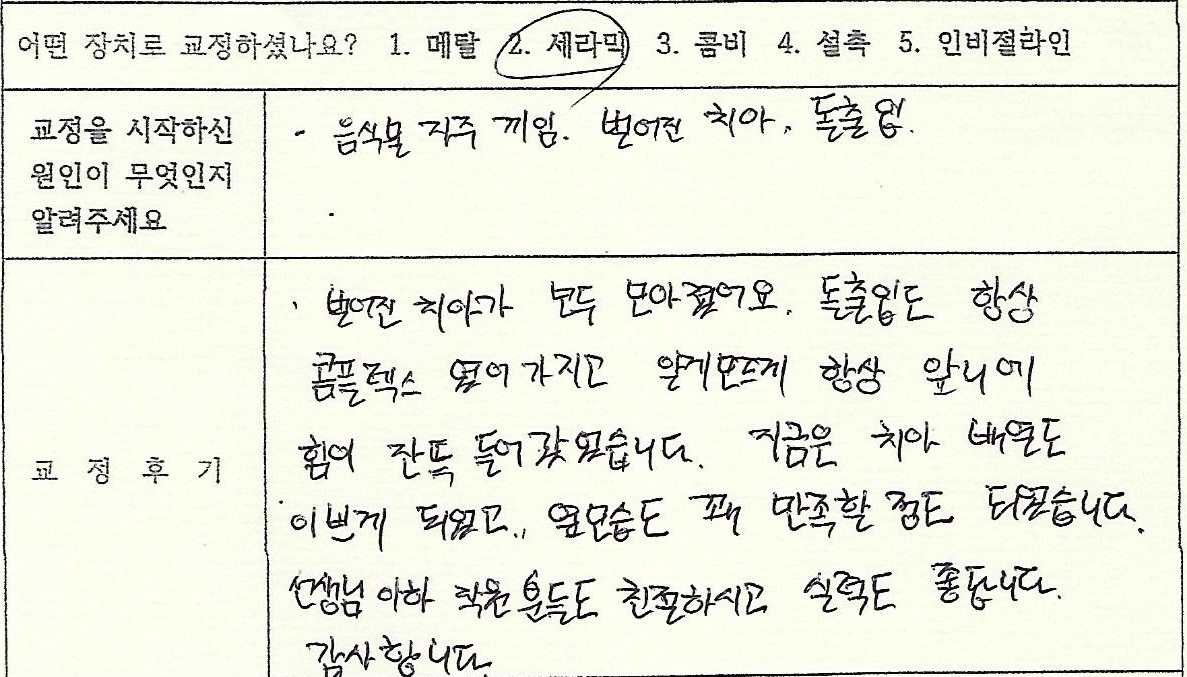 어떤 장치로 교정하셨나요? 1. 메탈 2. 세라믹 3. 콤비 4. 설측 5. 인비절라인
교정을 시작하신
원인이 무엇인지
알려주세요
· 음식물 자주 끼임. 벌어진 치아, 돌출입.
교 정 후 기
· 벌어진 치아가 모두 모아졌어요. 돌출입도 항상
콤플렉스 였어가지고 알게모르게 항상 앞니에
힘이 잔뜩 들어갔었습니다. 지금은 치아 배열도
이쁘게 되었고, 옆모습도 꽤 만족할 정도 되었습니다.
선생님 이하 직원분들도 친절하시고 실력도 좋답니다.
감사합니다.